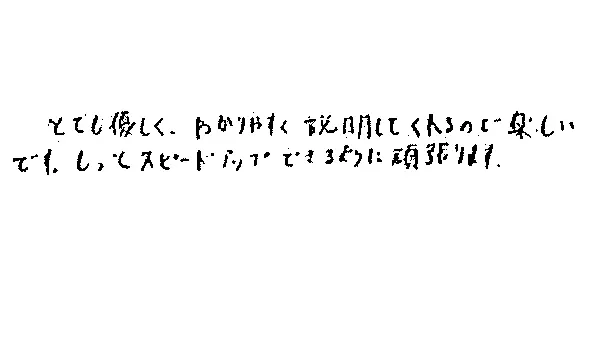 とても優しく、わかりやすく説明してくれるので楽しい
です。もっとスピードアップできるように頑張ります。